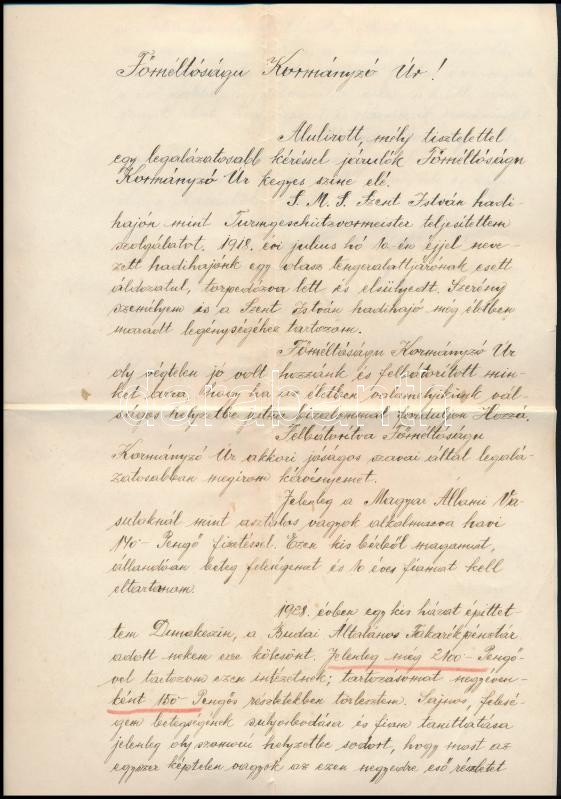 Főméltóságu Kormányzó Úr!
Alulirott, mély tisztelettel
egy legalázatosabb kéréssel járulók Főméltóságu
Kormányzó Úr kegyes szine elé.
S. M. S. Szent István hadi-
hajón mint Turmgeschützvormeister teljesitettem
szolgálatot. 1918. évi julius hó 10-én éjjel neve-
zett hadihajónk egy olasz tengeralattjárónak esett
áldozatul, torpedózva lett és elsülyedt. Szerény
személyem is a Szent István hadihajó még életben
maradt legénységéhez tartozom.
Főméltóságu Kormányzó Úr
oly végtelen jó volt hozzánk és felbátorított min-
ket arra, hogy ha az életben valamelyikünk vál-
ságos helyzetbe jutna bizalommal forduljon Hozzá.
Felbátoritva Főméltóságu
Kormányzó Úr akkori jóságos szavai által legalá-
zatosabban megirom kérvényemet.
Jelenleg a Magyar Állami Va-
sutaknál mint asztalos vagyok alkalmazva havi
140- Pengő fizetéssel. Ezen kis bérből magamat,
állandóan beteg feleségemet és 10 éves fiamat kell
eltartanom.
1928. évben egy kis házat épittet-
tem Dunakeszin, a Budai Általános Takarékpénztár
adott nekem erre kölcsönt. Jelenleg még 2100- Pengő-
vel tartozom ezen intézetnek; tartozásomat negyeden-
ként 150- Pengős részletekben törlesztem. Sajnos, felesé-
gem betegségének sulyosbodása és fiam tanittatása
jelenleg oly szomorú helyzetbe sodort, hogy most az
egyszer képtelen vagyok az ezen negyedre eső részletet
darabanth